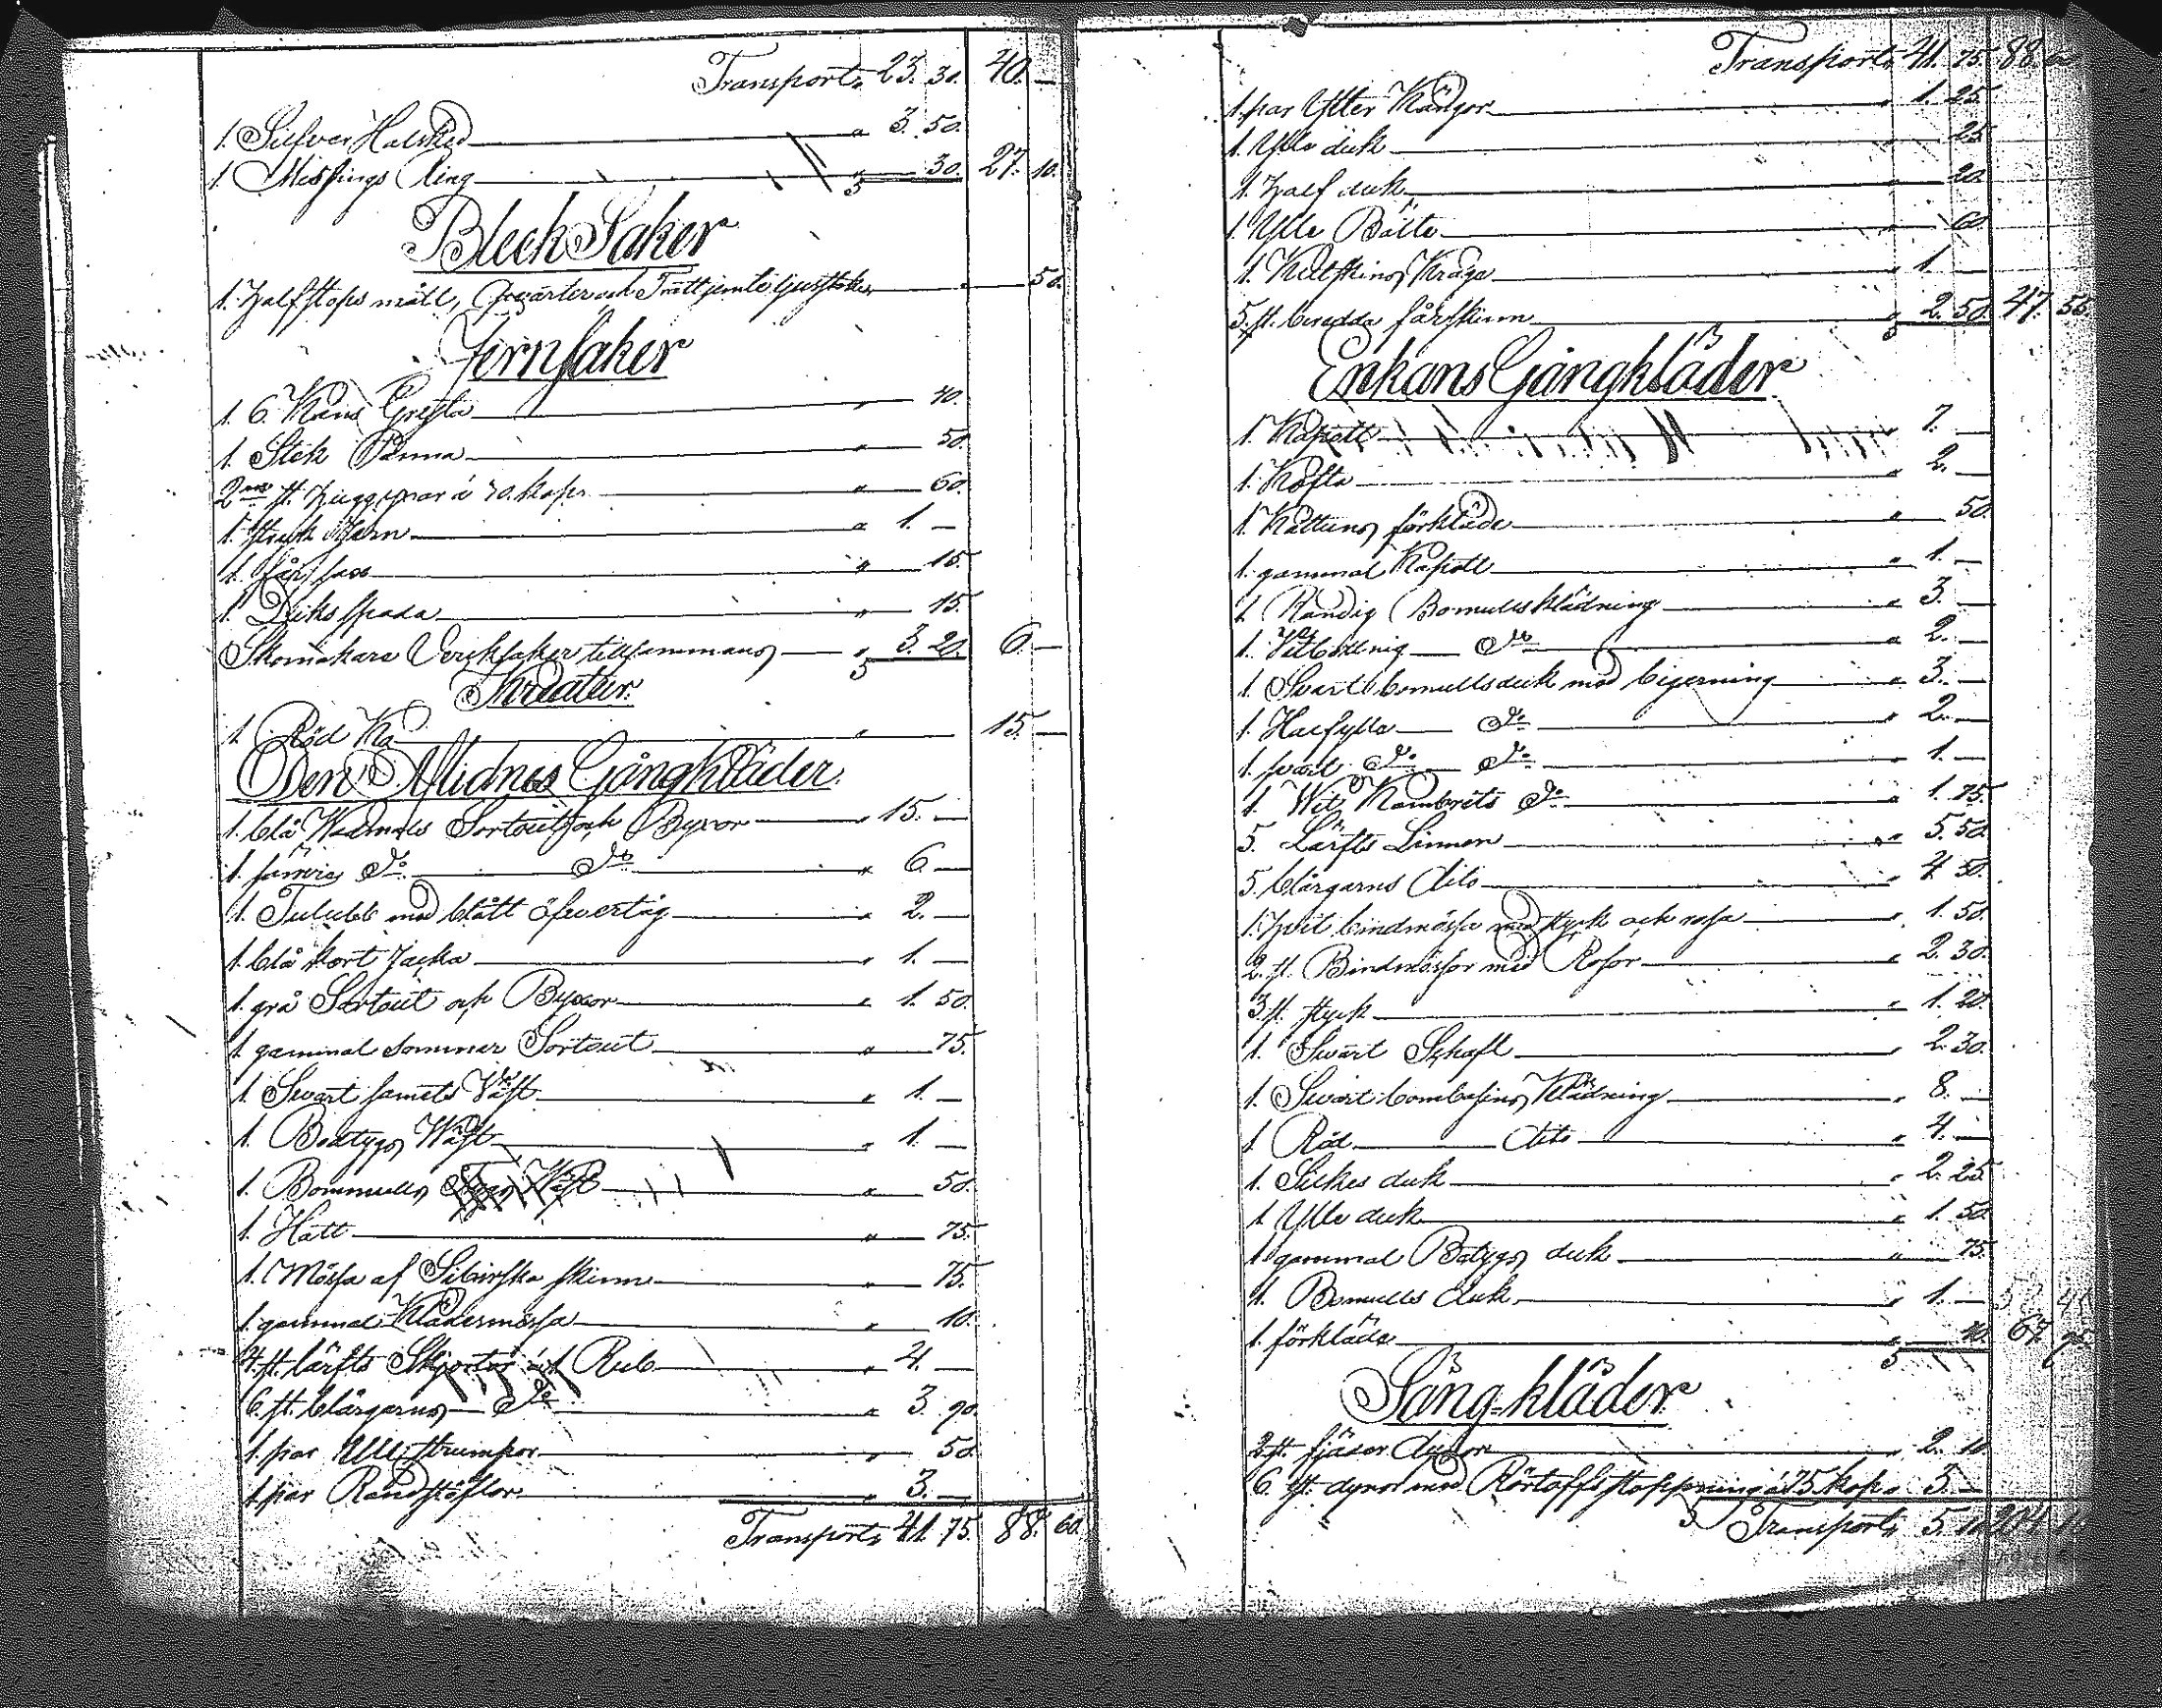 Transport 23. 30. 40. —
1. Silfver Halsked " 3. 50.
1. Missings Ring " 30. 27. 10.
Bleck Saker
1. Halfstops mått, Qvarter och Tratt jemte ljusstake 50.
Jernsaker
1. 6. Kans Gryta " 40.
1. Stek Panna " 50.
2ne st. Huggjernar á 30. kop. " 60.
1. Stryk Jern " 1. —
1. får sax " 15.
1. Dikes spada " 15.
Skomakare Verksaker tillsammans " 3. 20. 6. —
Kreatur.
1. Röd Ko " 15. —
Den Aflidnes Gångkläder.
1. blå Wadmals Sortout och Byxor " 15. —
1. sämre Do Do " 6. —
1. Tulubb med blått öfvertåg " 2. —
1. blå kort Jacka " 1. —
1. grå Sortout och Byxor " 1. 50.
1. gammal sommar Sortout " 75.
1. Svart samets Väst " 1. —
1. Botygs Wäst " 1. —
1. Bommulls " 50.
1. Hatt " 75.
1. Mössa af Sibirska skinn " 75.
1. gammal Klädesmössa " 10.
4. st. lärfts Skjortor á 1 Rub " 4. —
6. st. blårgarns Do " 3. 90.
1. par Ulle strumpor " 50.
1. par Randstöflor " 3. —
Transport 41. 75. 88. 60.
Transport 41. 75. 88. 60
1. par Ylter Kängor " 1. 25.
1. Ylle duk " 25.
1. Half duk " 20.
1. Ylle Bälte " 60.
1. Kalfskins Krage " 1. —
5. st. beredda fårskinn " 2. 50. 47. 55.
Enkans Gångkläder
1. Kapott " 7. —
1. Kofta " 2. —
1. Kattuns förkläde " 50.
1. gammal Kapott " 1. —
1. Randig Bomulls klädning " 3. —
1. Do " 2. —
1. Svart bomullsduk med bigerning " 3. —
1. Halfylle Do " 2. —
1. svart Do Do " 1. —
1. Wit Kambrits Do " 1. 75.
5. Lärfts Linnen " 5. 50.
5. blårgarns dito " 4 50.
1. Hvit bindmössa med styck och rosa " 1. 50.
2. st. Bindmössor med Rosor " 2. 30.
3. st. styck " 1. 20.
1. Svart Schalt " 2. 30.
1. Svart bombasins Klädning " 8. —
1. Röd dito " 4. —
1. Silkes duk " 2. 25.
1. Ylle duk " 1. 50.
1. gammal Botygs duk " 75.
1. Bomulls duk " 1. —
1. förkläde " 40. 67. 95.
Säng-kläder
2. st. fjäder dynor " 2. 10
6. st. dynor med Rörtoffs stoppning á 75 kop. " 3. —
Transport 5. 10 204